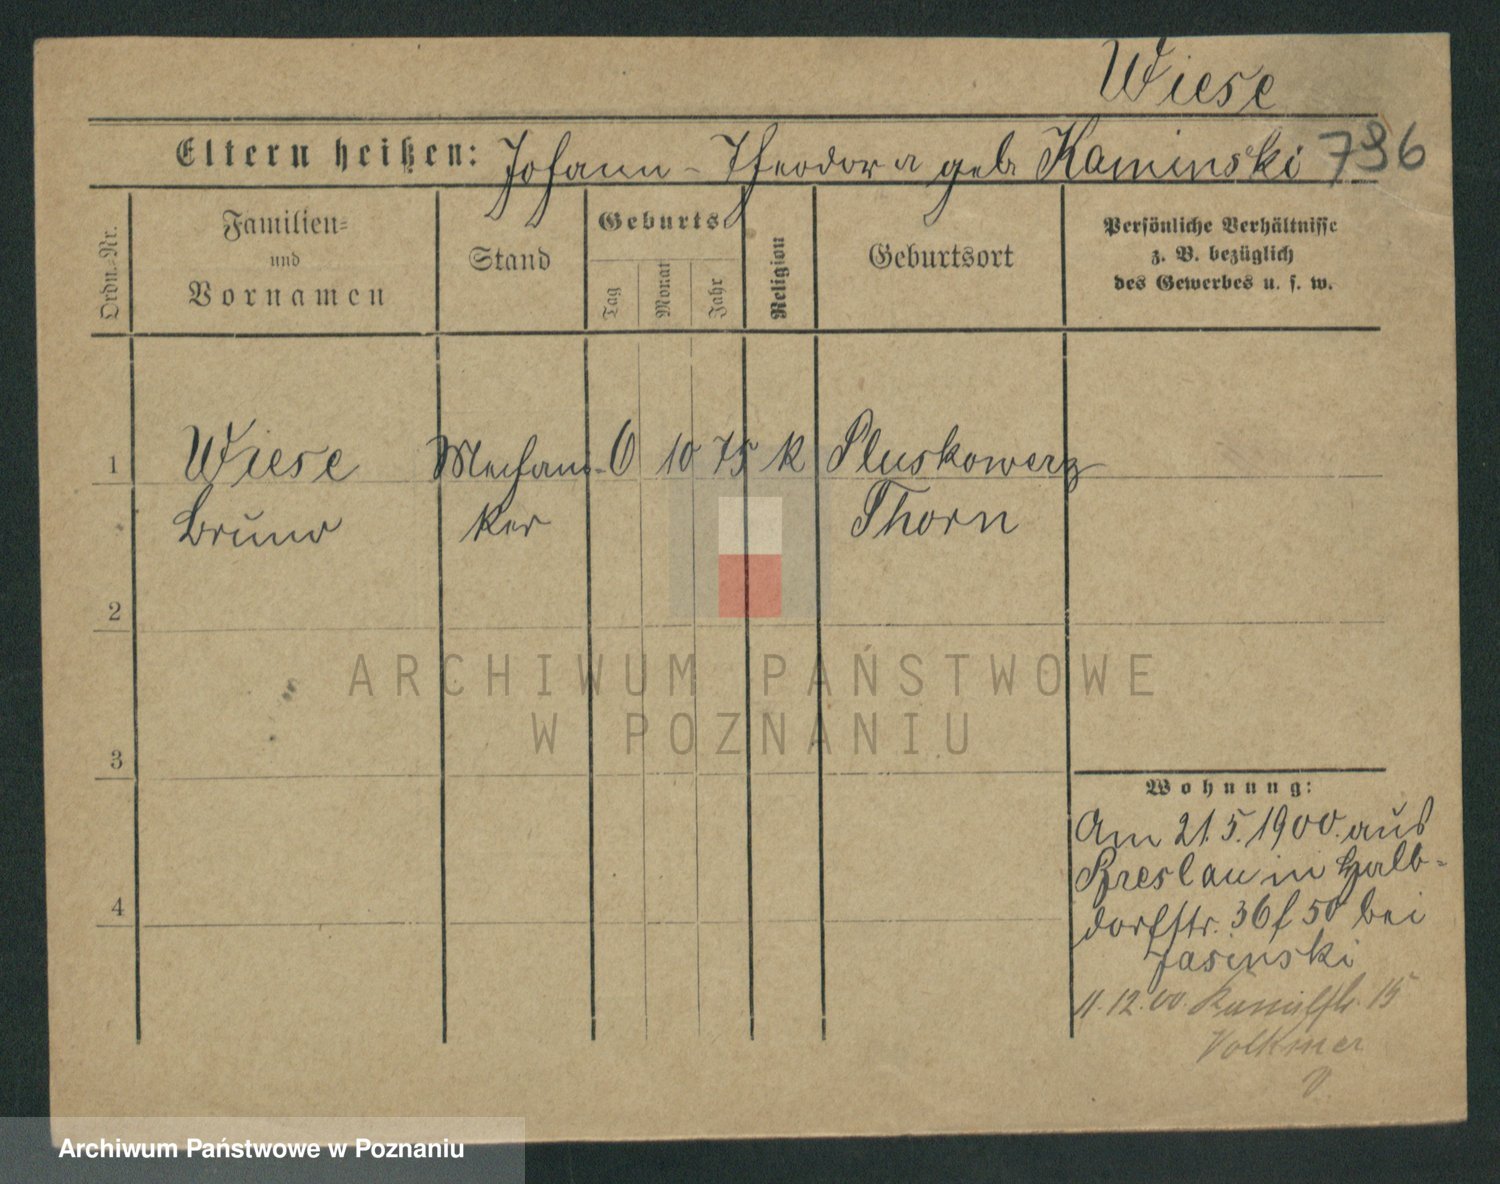 Wiese
Eltern heißen: Johann - Theodora geb. Kaminski 796
Ordn.-Nr.
Familien-
und
Vornamen
Stand
Geburts-
Tag
Monat
Jahr
Religion
Geburtsort
Persönliche Verhältnisse
z. B. bezüglich
des Gewerbes u. s. w.
1 Wiese Mechani- 6 10 75 k Pluskowenz
Bruno ker Thorn
2
3
4
Wohnung:
Am 21.5.1900. aus
Breslau in Halb-
dorfstr. 36 f 50 bei
Jasinski
11.12.00. 15
Volkmer
ARCHIWUM PAŃSTWOWE
W POZNANIU
Archiwum Państwowe w Poznaniu